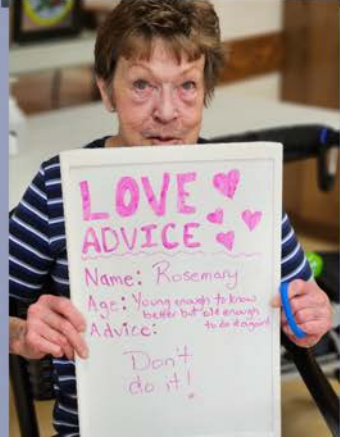 LOVE
ADVICE
Name: Rosemary
Age: Young enough to know
better but old enough
Advice: to do it again!
Don't
do it!